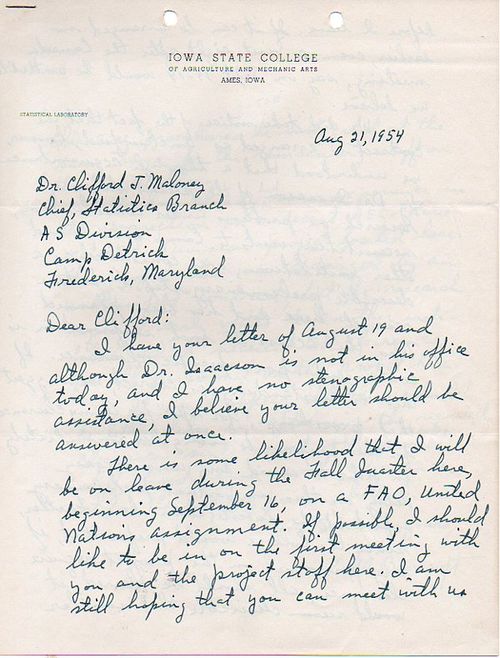 IOWA STATE COLLEGE
OF AGRICULTURE AND MECHANIC ARTS
AMES, IOWA
STATISTICAL LABORATORY
Aug 21, 1954
Dr. Clifford J. Maloney
Chief, Statistics Branch
AS Division
Camp Detrick
Frederick, Maryland
Dear Clifford:
I have your letter of August 19 and
although Dr. Isaacson is not in his office
today, and I have no stenographic
assistance, I believe your letter should be
answered at once.
There is some likelihood that I will
be on leave during the Fall Quarter here,
beginning September 16, on a FAO, United
Nations assignment. If possible, I should
like to be in on the first meeting with
you and the project staff here. I am
still hoping that you can meet with us